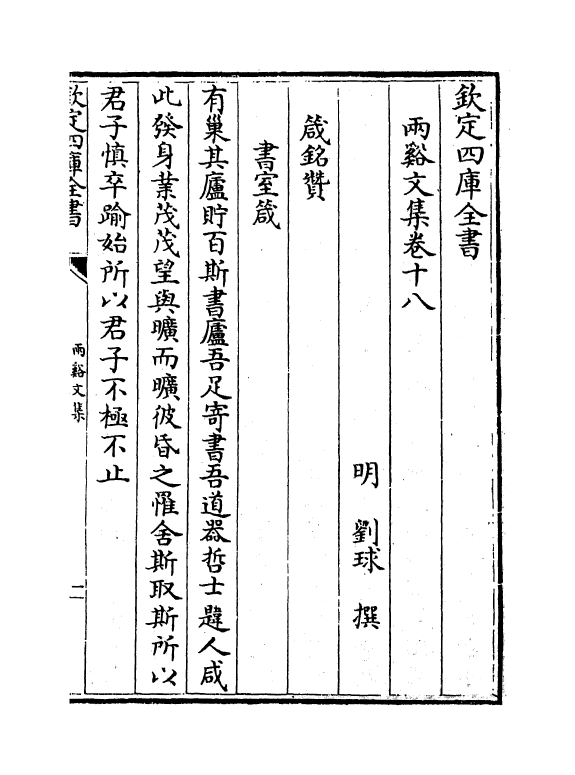 欽定四庫全書
兩谿文集卷十八
明　劉球　撰
箴銘贊
書室箴
有巢其廬貯百斯書廬吾足寄書吾道器哲士韙人咸
此發身業茂茂望與曠而曠彼昏之罹舍斯取斯所以
君子慎卒踰始所以君子不極不止
欽定四庫全書
兩谿文集
二